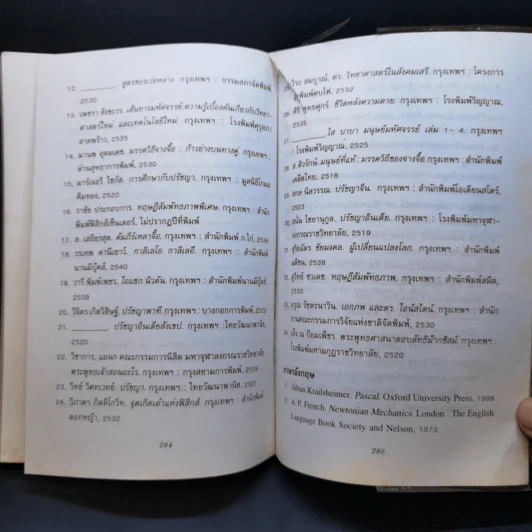 12. ________ สูตรของเว่ยหล่าง. กรุงเทพฯ : ธรรมสภาจัดพิมพ์
2530
13. เพชรา สังขะวร. เส้นทางมหัศจรรย์ ความรู้เบื้องต้นเกี่ยวกับวิทยา-
ศาสตร์ใหม่ และเทคโนโลยีใหม่. กรุงเทพฯ : โรงพิมพ์คุรุสภา
ลาดพร้าว, 2535
14. มานพ อุดมเดช. มรรควิถีจางจื้อ : ก้าวย่างบนทางคู่. กรุงเทพฯ :
ด่านสุทธาการพิมพ์, 2530
15. มาร์เจอรี ไซกัส. การศึกษากับปรัชญา. กรุงเทพฯ : มูลนิธิโกมล
คีมทอง, 2520
16. ราชัย ประกอบการ. ทฤษฎีสัมพัทธภาพพิเศษ. กรุงเทพฯ : สำนัก
พิมพ์ฟิสิกส์เซ็นเตอร์, ไม่ปรากฏปีที่พิมพ์
17. ล. เสถียรสุต. คัมภีร์เหลาจื๊อ. กรุงเทพฯ : สำนักพิมพ์ ก.ไก่, 2538
18. วรเทพ ดานีเยาว์. กาลิเลโอ กาลิเลอี. กรุงเทพฯ : สำนักพิมพ์
นานมีบุ๊คส์, 2540
19. วารี พิมพ์เพชร. ไอแซก นิวตัน. กรุงเทพฯ : สำนักพิมพ์นานมีบุ๊คส์,
2539
20. วิจิตร เกิดวิสิษฐ์. ปรัชญาพาที. กรุงเทพฯ : บางกอกการพิมพ์, 2523
21. ________. ปรัชญาอินเดียสังเขป. กรุงเทพฯ : ไทยวัฒนาพานิช,
2520
22. วิชาการ, แผนก คณะกรรมการนิสิต มหาจุฬาลงกรณราชวิทยาลัย.
พระพุทธเจ้าสอนอะไร. กรุงเทพฯ : กรุงสยามการพิมพ์, 2519
23. วิทย์ วิศทเวทย์. ปรัชญา. กรุงเทพฯ : ไทยวัฒนาพานิช, 2521
24. วิภาดา กิตติโกวิท. จุดเกิดเต๋าแห่งฟิสิกส์. กรุงเทพฯ : สำนักพิมพ์
ดอกหญ้า, 2532
284
วีระ สมบูรณ์, ดร. วิทยาศาสตร์ในสังคมเสรี. กรุงเทพฯ : โครงการ
พิมพ์คบไฟ, 2532
ศิริ พุทธศุกร์. ชีวิตหลังความตาย. กรุงเทพฯ : โรงพิมพ์วิญญาณ,
2533
________ ไส บาบา มนุษย์มหัศจรรย์ เล่ม 1 - 4. กรุงเทพฯ
: โรงพิมพ์วิญญาณ, 2525
ส. ศิวรักษ์. มนุษย์ที่แท้ : มรรควิถีของจางจื้อ. กรุงเทพฯ : สำนักพิมพ์
เคล็ดไทย, 2518
นิลวรรณ. ปรัชญาจีน. กรุงเทพฯ : สำนักพิมพ์โอเดียนสโตร์,
2523
ไชยานุกูล. ปรัชญาอินเดีย. กรุงเทพฯ : โรงพิมพ์มหาจุฬา-
ลงกรณราชวิทยาลัย, 2519
สุวิชฉัตร ชัยมงคล. ผู้เปลี่ยนแปลงโลก. กรุงเทพฯ : สำนักพิมพ์
2538
สุวิทย์ ชวเดช. ทฤษฎีสัมพัทธภาพ. กรุงเทพฯ : สำนักพิมพ์สนิต,
2533
อรุณ รัชตะนาวิน. เอกภพ และดร. ไอน์สไตน์. กรุงเทพฯ : สำนัก
งานคณะกรรมการวิจัยแห่งชาติจัดพิมพ์, 2530
ณ ป้อมเพ็ชร. พระพุทธศาสนาตอบลัทธิมาร์กซิสม์. กรุงเทพฯ :
โรงพิมพ์มหามกุฎราชวิทยาลัย, 2520
ภาษาอังกฤษ
1. Alban Krailsheimer. Pascal. Oxford University Press, 1988
2. A.P. French. Newtonian Mechanics. London : The English
Language Book Society and Nelson, 1973
285